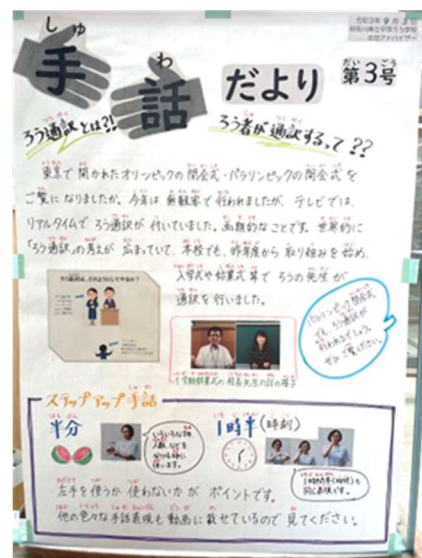 令和3年9月3日
手話だより 第3号
ろう通訳とは?!
ろう者が通訳するって??
東京で開かれたオリンピックの閉会式・パラリンピックの開会式を
ご覧になりましたか。今年は無観客で行われましたが、テレビでは、
リアルタイムでろう通訳が付いていました。画期的なことです。世界的に
「ろう通訳」の考えが広まっていて、本校でも、昨年度から取り組みを始め、
入学式や始業式等でろうの先生が
通訳を行いました。
パラリンピック閉会式
でも、ろう通訳が
行われるでしょう。
ぜひご覧ください。
1学期終業式の校長先生の話の様子
ステップアップ手話
半分
いろいろな物、
人数などを
分ける時に
使います。
1時半(時刻)
1時間半(時間)も
同じ表現です。
左手を使うか使わないかがポイントです。
他の色々な手話表現も動画に載せているので見てください。